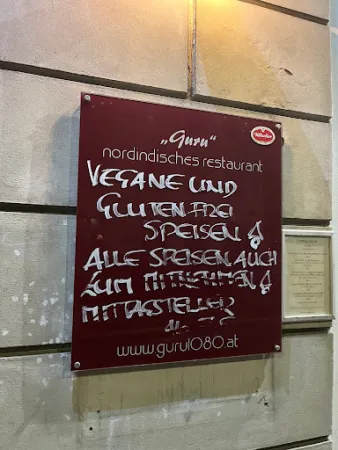 „Guru“
nordindisches restaurant
VEGANE UND
GLUTENFREI
SPEISEN
ALLE SPEISEN AUCH
ZUM MITNEHMEN
MITTAGSTELLER
www.guru1080.at